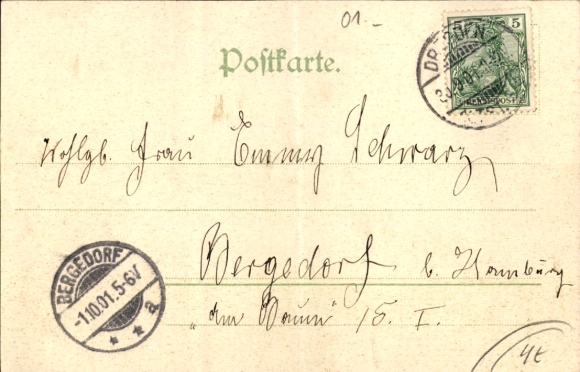 01.-
Postkarte.
DRESDEN
5
REICHSPOST
Wohlgb. Frau Emmy Schwarz
Bergedorf b. Hamburg
"am Baum" 15. I.
BERGEDORF
-1.10.01.5-6V
* * a
4t